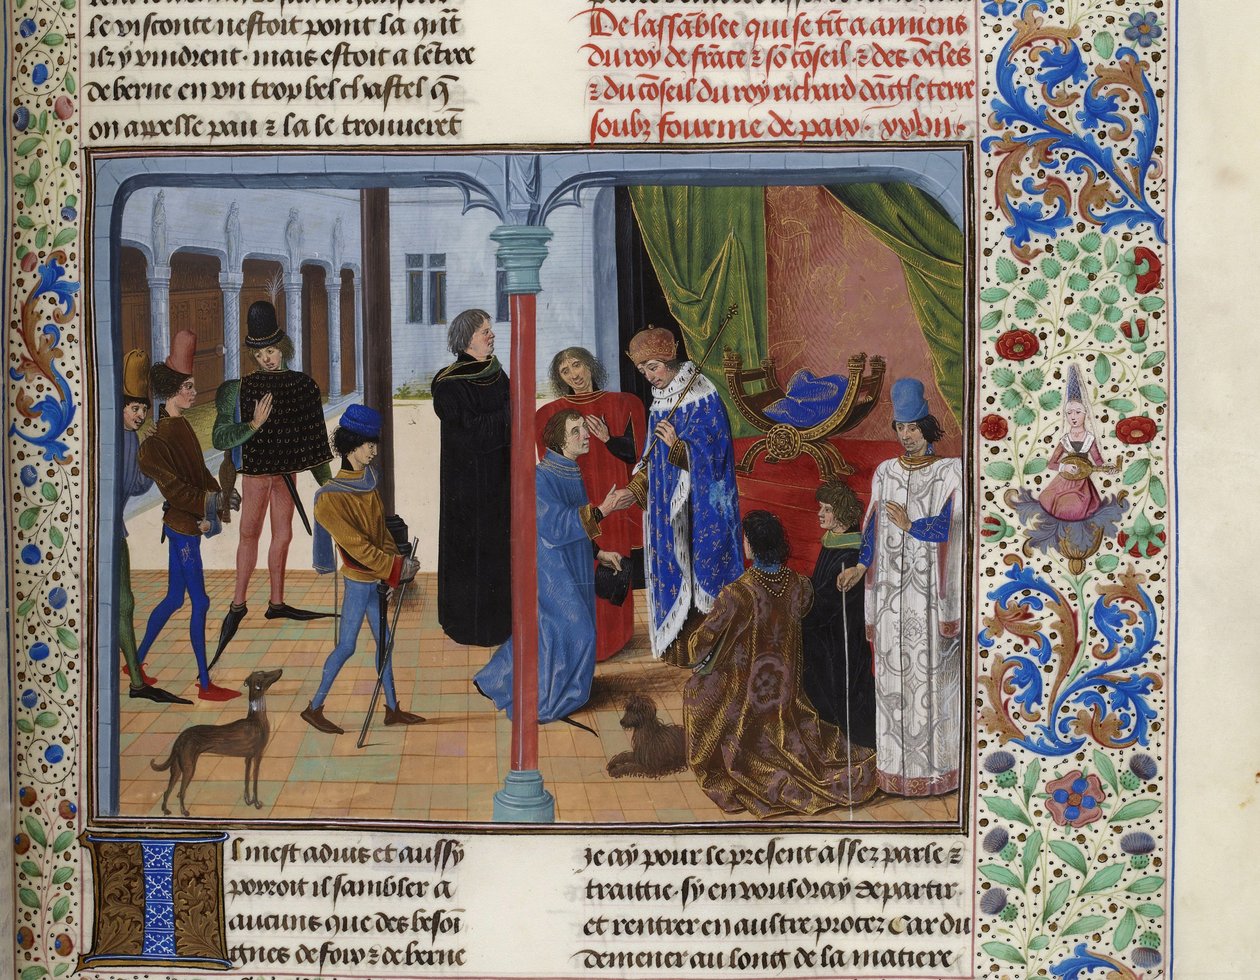 le visconte nestoit point la qñt
ilz y vindrent · mais estoit a lentree
de berne en un trop bel chastel q̃
on appelle pau ⁊ la le trouueret̃
De lassãblee qui se tĩt a amiens
du roy de frãce ⁊ sõ cõseil · ⁊ des õcles
⁊ du cõseil du roy richard dãgleterre
soubz fourme de paix · xxvii ·
Il mest aduis et aussy
pouroit il sambler a
aucuns que des besoi
gnes de foix ⁊ de berne
Je ay pour le present assez parle ⁊
traittie · sy en vouldray departir ·
et rentrer en aultre proces Car du
demener au long de la matiere